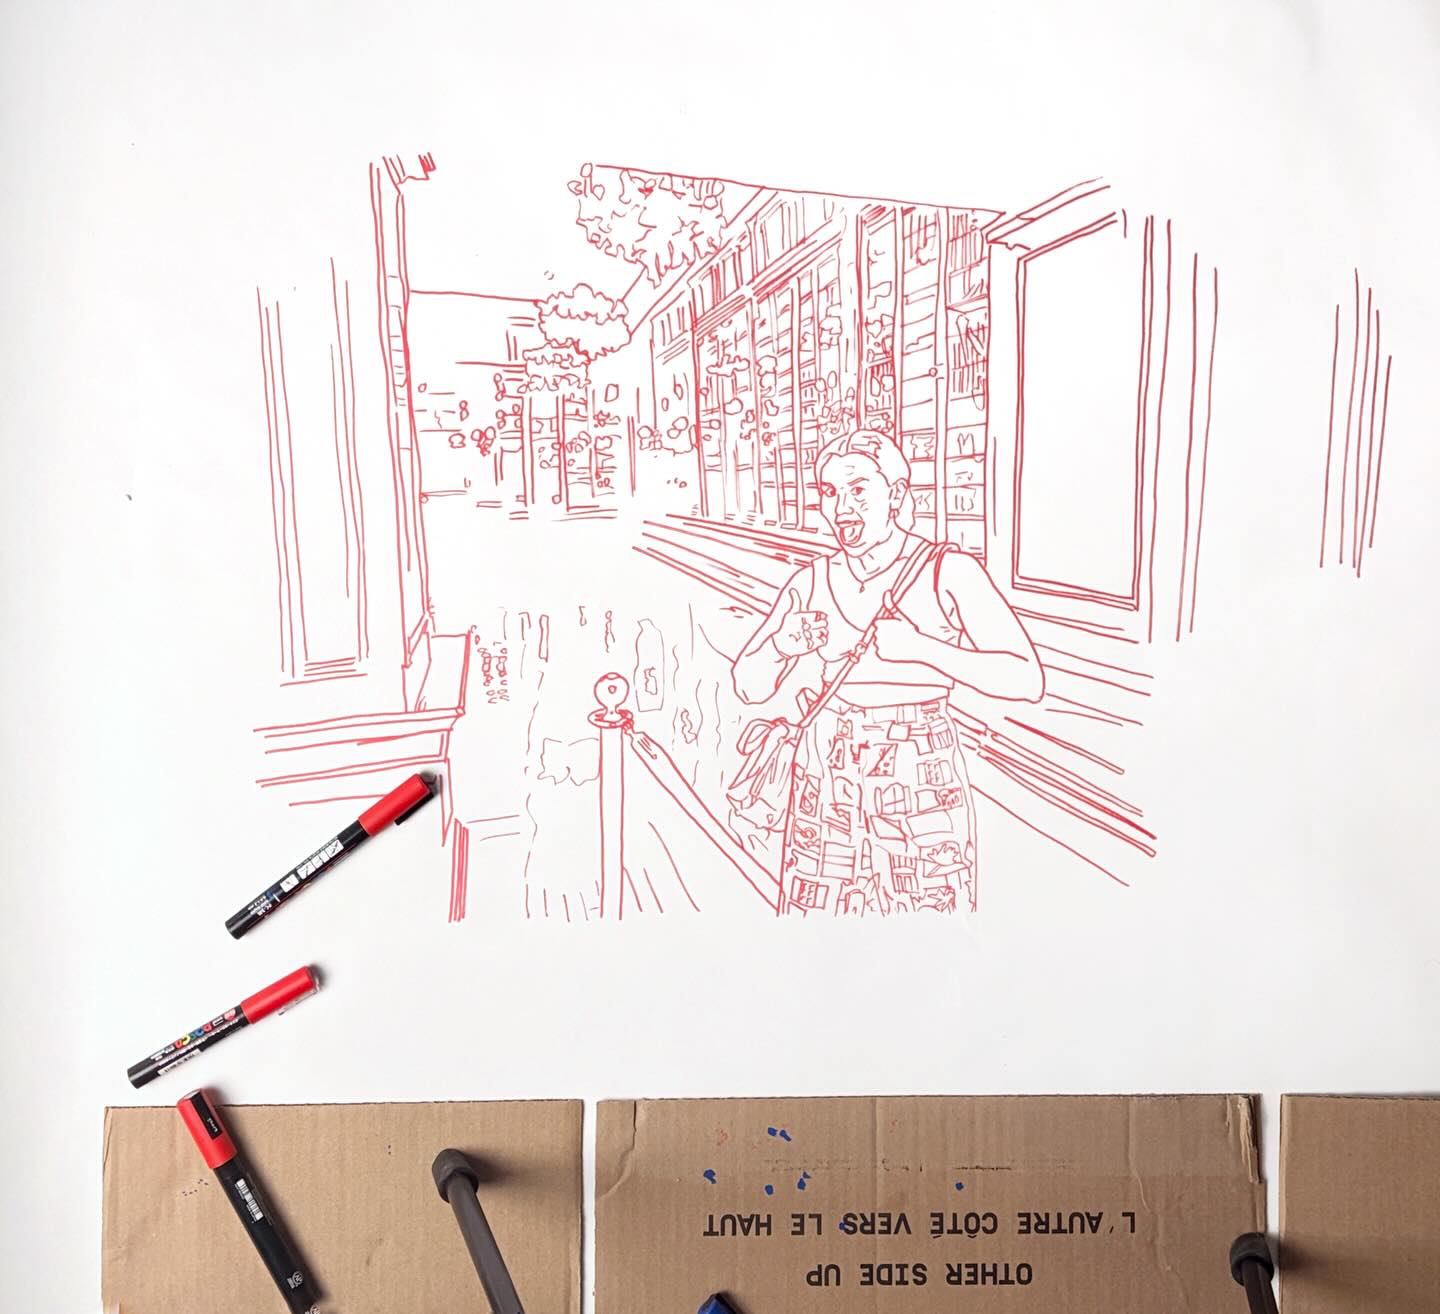 POSCA
uni
L'AUTRE CÔTÉ VERS LE HAUT
OTHER SIDE UP